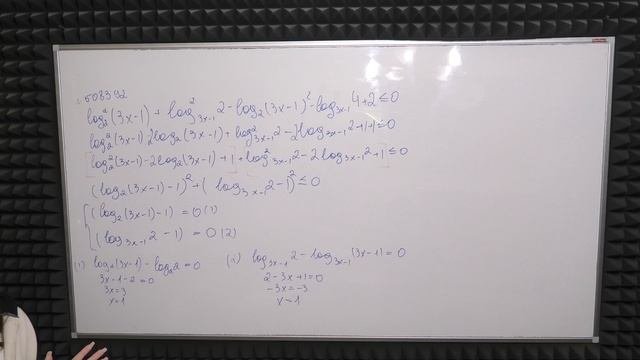 508392
log₂²(3x-1) + log²₃ₓ₋₁ 2 - log₂(3x-1)² - log₃ₓ₋₁ 4 + 2 ≤ 0
log₂²(3x-1) - 2log₂(3x-1) + log²₃ₓ₋₁ 2 - 2log₃ₓ₋₁ 2 + 1 + 1 ≤ 0
[log₂²(3x-1) - 2log₂(3x-1) + 1] + [log²₃ₓ₋₁ 2 - 2log₃ₓ₋₁ 2 + 1] ≤ 0
(log₂(3x-1) - 1)² + (log₃ₓ₋₁ 2 - 1)² ≤ 0
{(log₂(3x-1) - 1) = 0 (1)
(log₃ₓ₋₁ 2 - 1) = 0 (2)
(1) log₂(3x-1) - log₂2 = 0
3x-1-2=0
3x=3
x=1
log₃ₓ₋₁ 2 - log₃ₓ₋₁ (3x-1) = 0
2-3x+1=0
-3x=-3
x=1